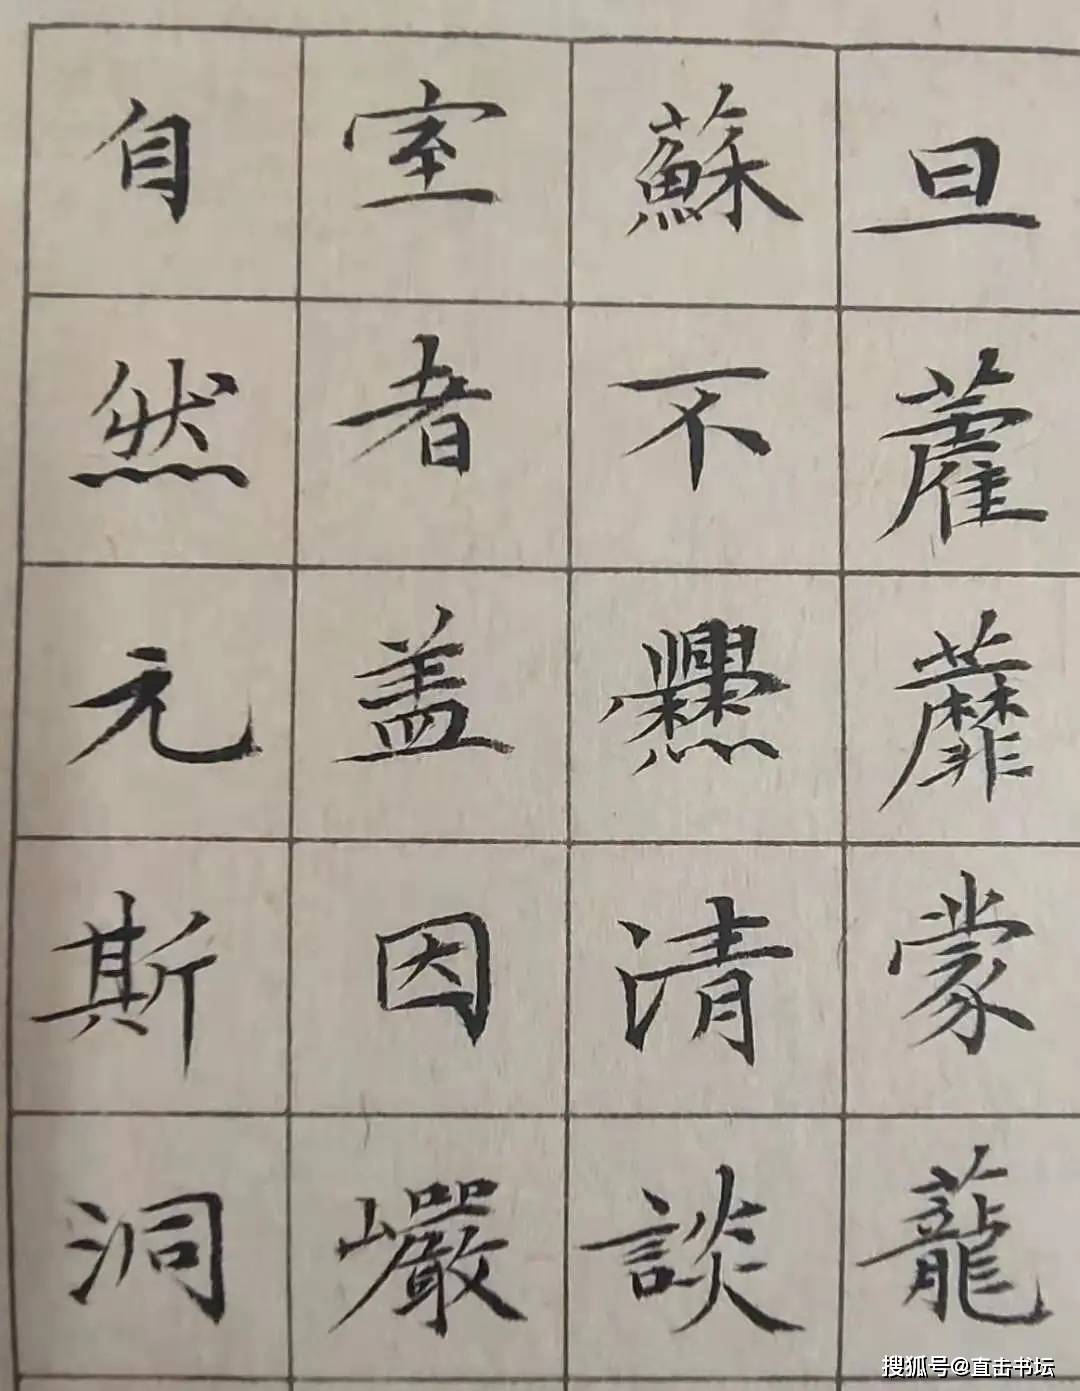 旦藿蘼蒙蘢
蘇不爨清談
室者盖因巗
自然元斯洞
搜狐号@直击书坛